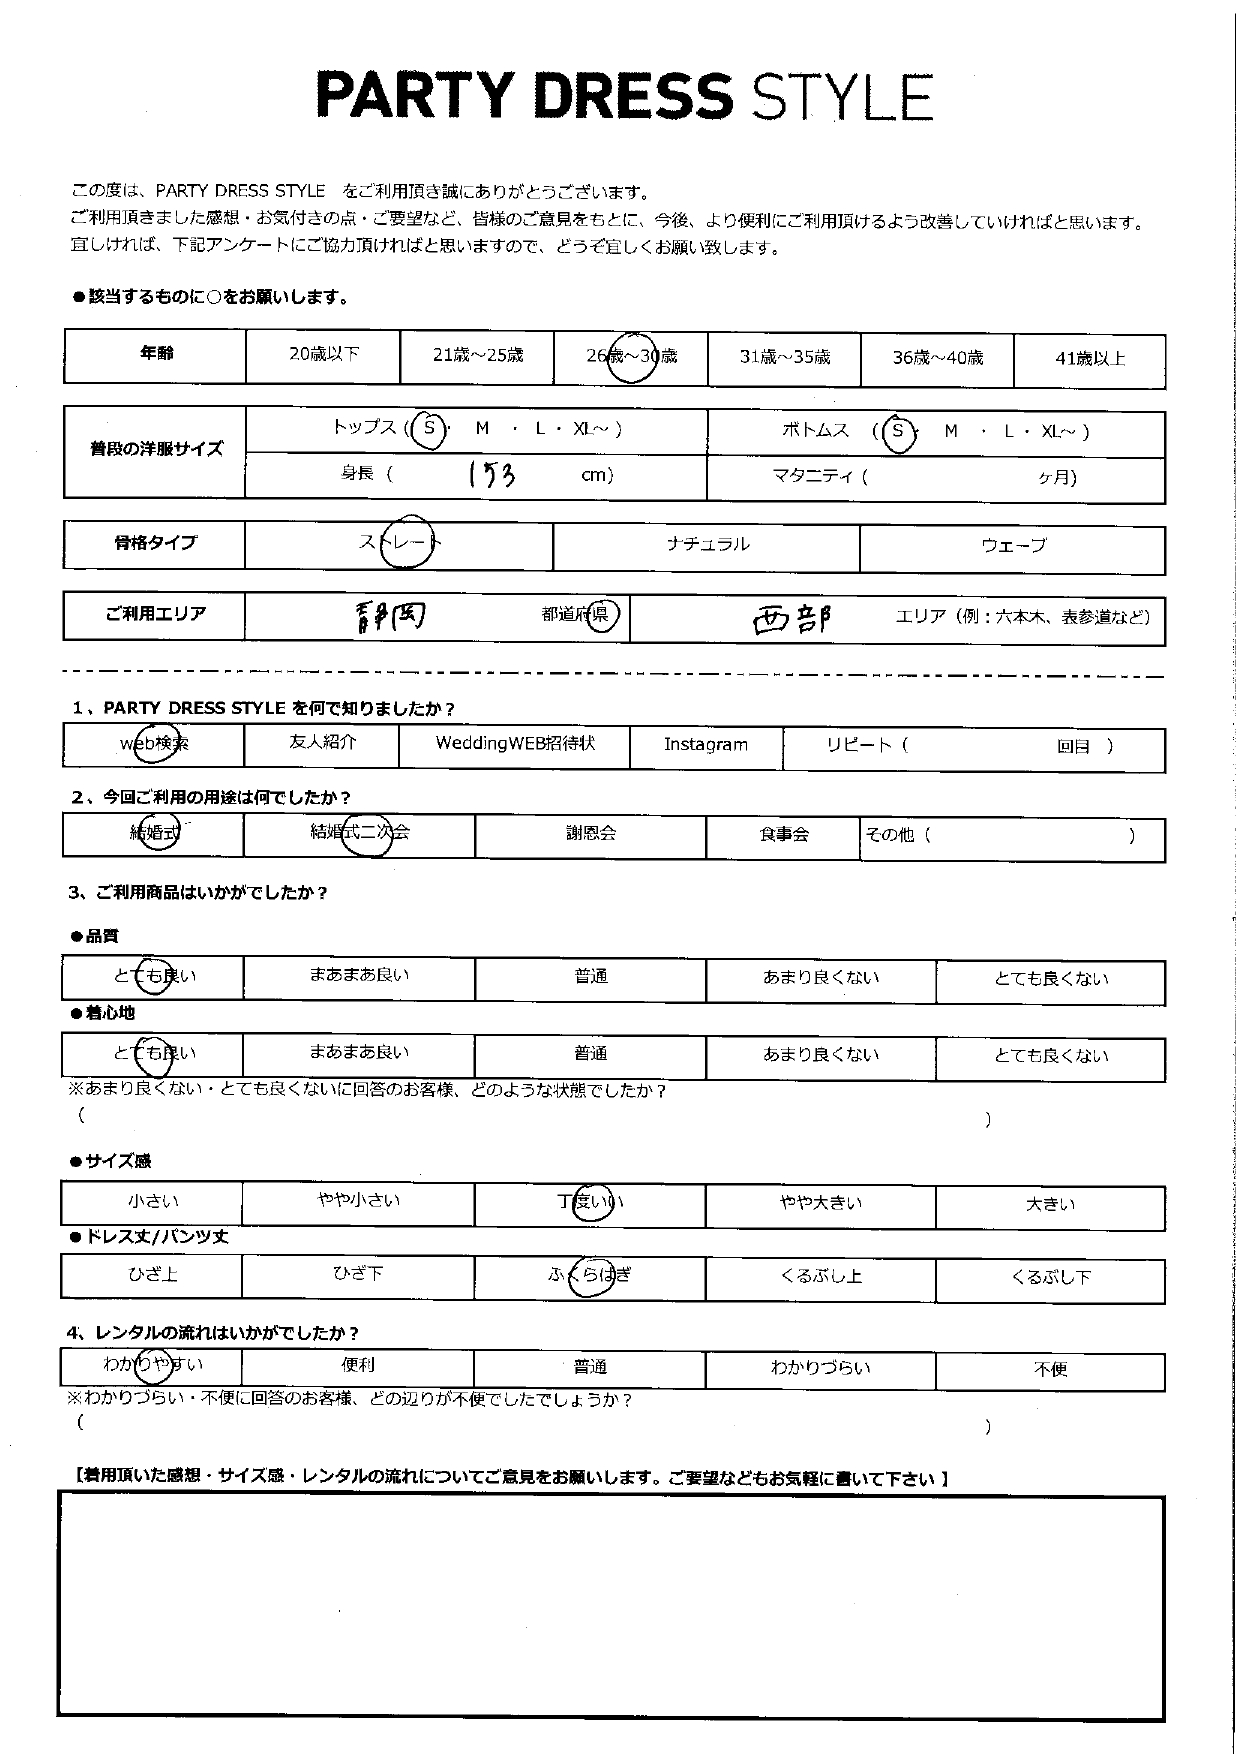 PARTY DRESS STYLE
この度は、PARTY DRESS STYLE をご利用頂き誠にありがとうございます。
ご利用頂きました感想・お気付きの点・ご要望など、皆様のご意見をもとに、今後、より便利にご利用頂けるよう改善していければと思います。
宜しければ、下記アンケートにご協力頂ければと思いますので、どうぞ宜しくお願い致します。
●該当するものに○をお願いします。
年齢 20歳以下 21歳～25歳 26歳～30歳 31歳～35歳 36歳～40歳 41歳以上
普段の洋服サイズ トップス (S・ M ・ L・ XL～ ) ボトムス (S・ M ・ L・ XL～ )
身長 ( 153 cm) マタニティ ( ヶ月)
骨格タイプ ストレート ナチュラル ウェーブ
ご利用エリア 静岡 都道府県 西部 エリア（例：六本木、表参道など）
1、PARTY DRESS STYLE を何で知りましたか？
web検索 友人紹介 WeddingWEB招待状 Instagram リピート ( 回目 )
2、今回ご利用の用途は何でしたか？
結婚式 結婚式二次会 謝恩会 食事会 その他 ( )
3、ご利用商品はいかがでしたか？
●品質
とても良い まあまあ良い 普通 あまり良くない とても良くない
●着心地
とても良い まあまあ良い 普通 あまり良くない とても良くない
※あまり良くない・とても良くないに回答のお客様、どのような状態でしたか？
( )
●サイズ感
小さい やや小さい 丁度いい やや大きい 大きい
●ドレス丈/パンツ丈
ひざ上 ひざ下 ふくらはぎ くるぶし上 くるぶし下
4、レンタルの流れはいかがでしたか？
わかりやすい 便利 普通 わかりづらい 不便
※わかりづらい・不便に回答のお客様、どの辺りが不便でしたでしょうか？
( )
【着用頂いた感想・サイズ感・レンタルの流れについてご意見をお願いします。ご要望などもお気軽に書いて下さい 】